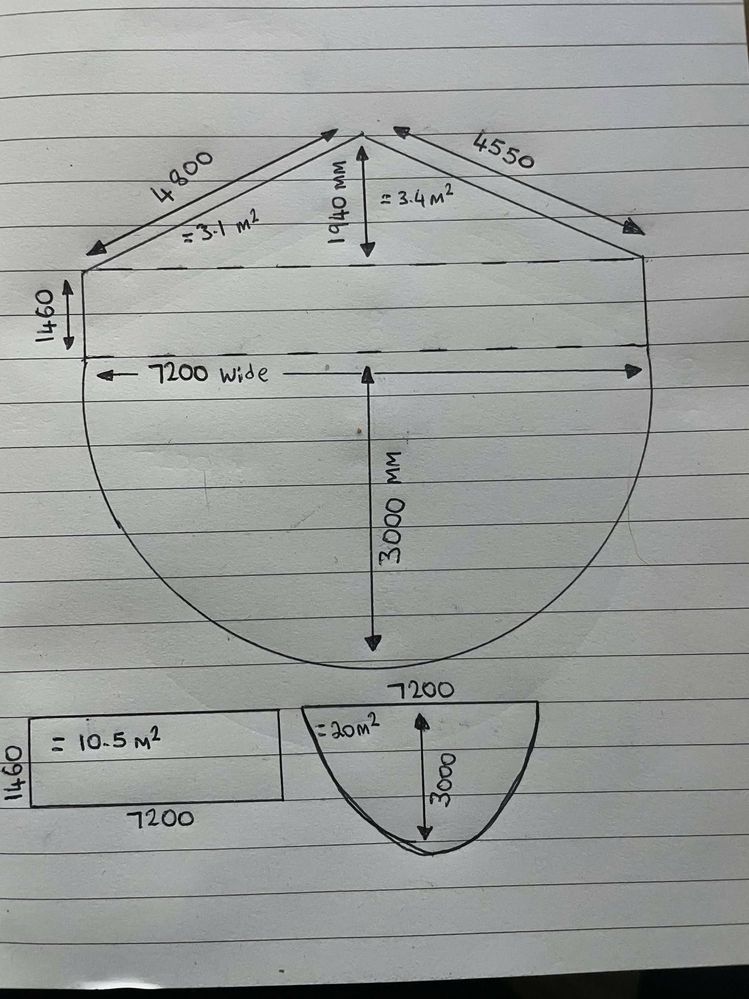 4800
4550
= 3.1 m²
1940 MM
= 3.4 M²
1460
7200 wide
3000 MM
7200
= 10.5 M²
= 20m²
1460
3000
7200